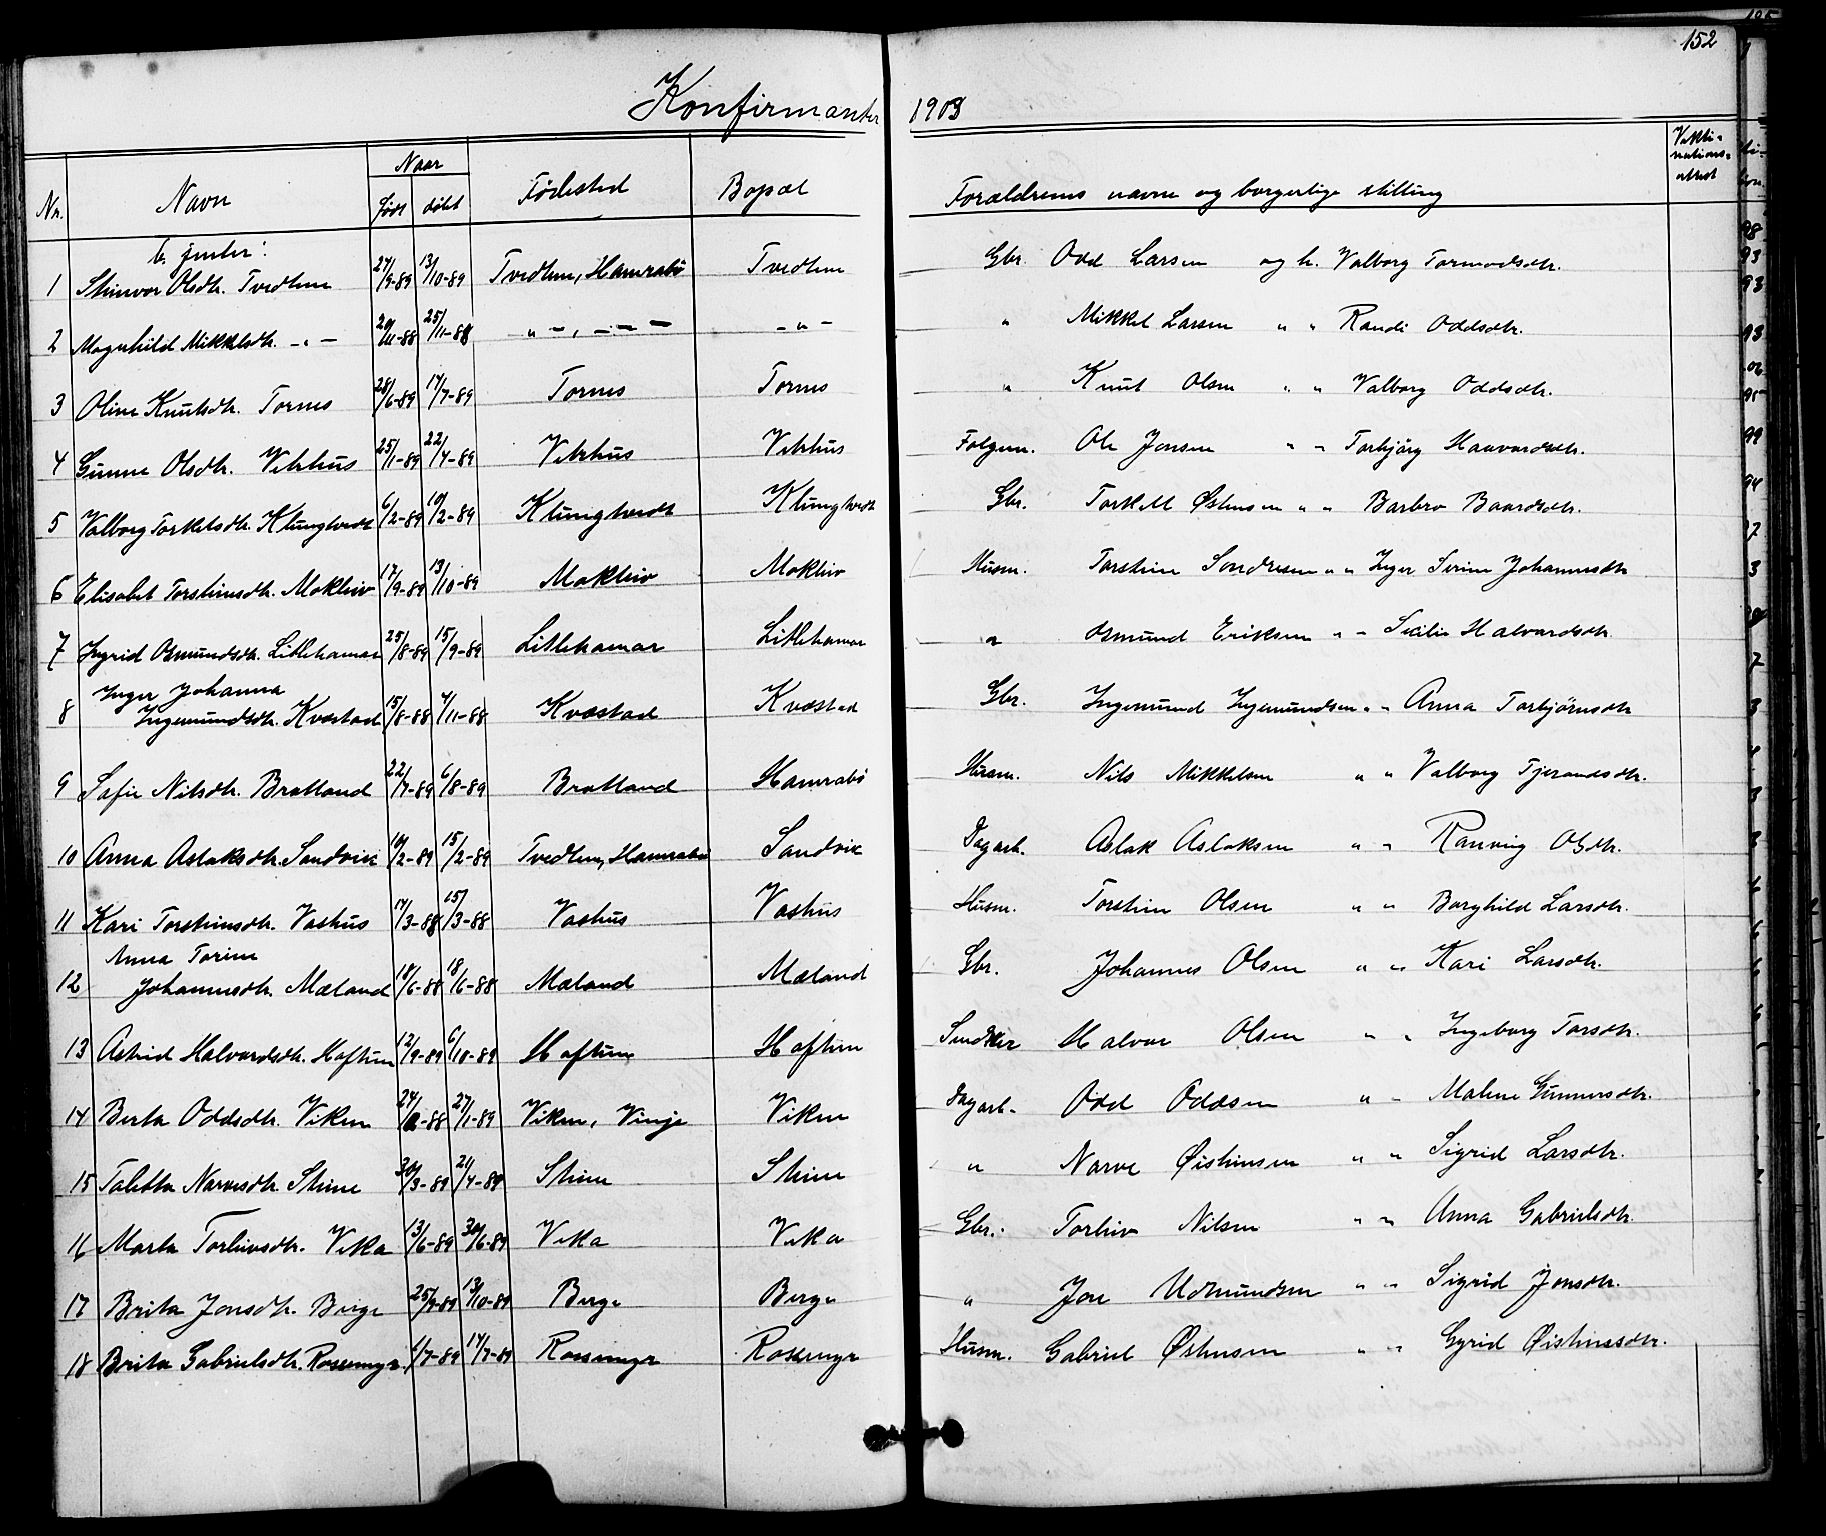 152
Konfirmanter 1903
Nr. Navn Naar født døbt Fødested Bopæl Forældrenes navne og borgerlige stilling Vakcinationsattest
b. jenter:
1 Steinvor Olsdtr. Tvedten 27/9-89 13/10-89 Tvedten, Hamrabø Tvedten Gbr. Odd Larsen og h. Valborg Tormodsdtr.
2 Magnhild Mikkelsdtr. -"- 20/11-88 25/11-88 "-, --- -"- " Mikkel Larsen " " Randi Oddsdtr.
3 Oline Knutsdtr. Tornes 28/6-89 14/7-89 Tornes Tornes " Knut Olsen " " Valborg Oddsdtr.
4 Gunne Olsdtr. Vetrhus 25/1-89 22/4-89 Vetrhus Vetrhus Folgem. Ole Jonsen " " Torbjørg Haavardsdtr.
5 Valborg Torkelsdtr. Klungtvedt 6/2-89 10/2-89 Klungtvedt Klungtvedt Gbr. Torkell Østensen " " Barbro Baardsdtr.
6 Elisabet Torsteinsdtr. Mokleiv 17/9-89 13/10-89 Mokleiv Mokleiv Husm. Torstein Sondresen " " Inger Serine Johannesdtr
7 Ingrid Osmundsdtr. Litlehamar 25/8-89 15/9-89 Litlehamar Litlehamar " Osmund Eriksen " " Secilie Halvardsdtr.
8 Inger Johanna
Ingemundsdtr. Kvæstad 15/8-88 4/11-88 Kvæstad Kvæstad Gbr. Ingemund Ingemundsen " " Anna Torbjørnsdtr
9 Sofie Nilsdtr. Bratland 22/7-89 6/8-89 Bratland Hamrabø Husm. Nils Mikkelsen " " Valborg Tjerandsdtr.
10 Anna Aslaksdtr. Sandvik 10/2-89 15/2-89 Tvedten, Hamrabø Sandvik Dagarb. Aslak Aslaksen " " Ranveig Olsdtr.
11 Kari Torsteinsdtr. Vashus 14/3-88 15/3-88 Vashus Vashus Husm. Torstein Olsen " " Borghild Larsdtr.
12 Anna Torine
Johannesdtr. Mæland 18/6-88 18/6-88 Mæland Mæland Gbr. Johannes Olsen " " Kari Larsdtr.
13 Astrid Halvardsdtr. Haftun 12/9-89 6/10-89 Haftun Haftun Snedker Halvor Olsen " " Ingeborg Torsdtr.
14 Berta Oddsdtr. Viken 24/ -88 27/1-89 Viken, Vinje Viken Dagarb. Odd Oddsen " " Malene Gunnersdtr.
15 Taletta Narvesdtr. Steine 30/3-89 21/4-89 Steine Steine " Narve Øisteinsen " " Sigrid Larsdtr.
16 Marta Torleivsdtr. Veka 13/6-89 30/6-89 Veka Veka Gbr. Torleiv Nilsen " " Anna Gabrielsdtr.
17 Brita Jonsdtr. Berge 25/9-89 13/10-89 Berge Berge " Jon Udmundsen " " Sigrid Jonsdtr.
18 Brita Gabrielsdtr. Rossemyr 1/7-89 14/7-89 Rossemyr Rossemyr Husm. Gabriel Østensen " " Gyrid Øisteinsdtr.